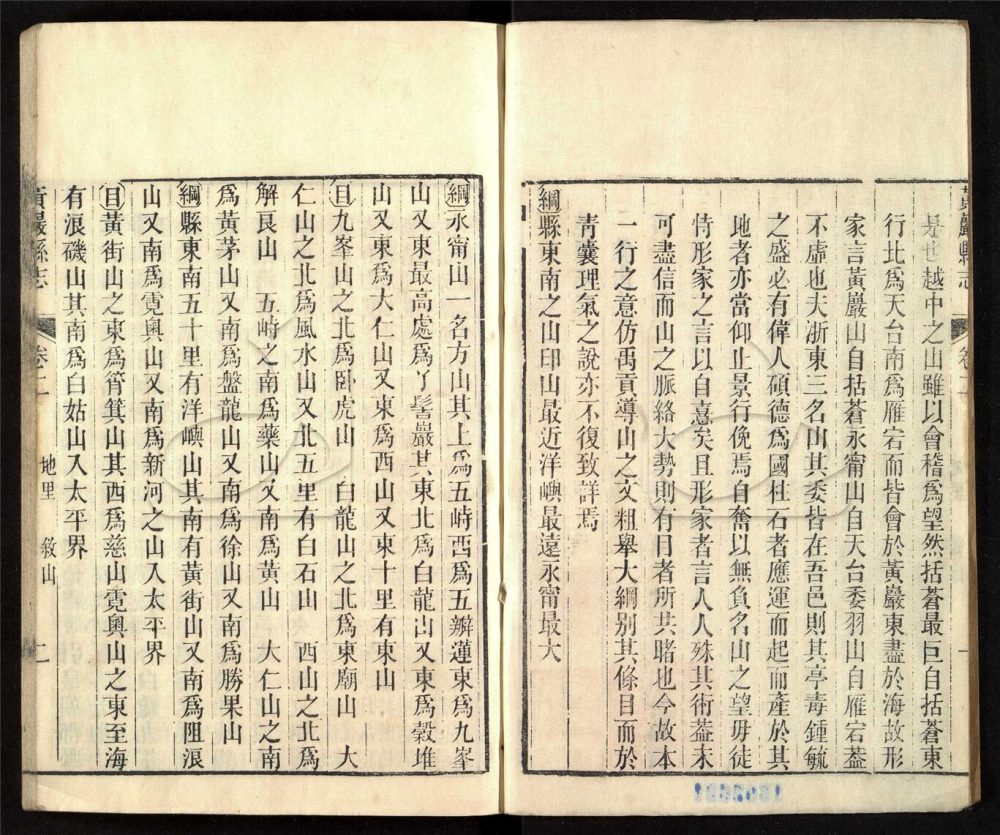 黃巖縣志
是也越中之山雖以會稽爲望然括蒼最巨自括蒼東
行北爲天台南爲雁宕而皆會於黃巖東盡於海故形
家言黃巖山自括蒼永甯山自天台委羽山自雁宕蓋
不虛也夫浙東三名山其委皆在吾邑則其亭毒鍾毓
之盛必有偉人碩德爲國柱石者應運而起而產於其
地者亦當仰止景行俛焉自奮以無負名山之望毋徒
恃形家之言以自憙矣且形家者言人人殊其術蓋未
可盡信而山之脈絡大勢則有目者所共睹也今故本
一行之意仿禹貢導山之文粗舉大綱別其條目而於
靑囊理氣之說亦不復致詳焉
綱縣東南之山印山最近洋嶼最遠永甯最大
綱永甯山一名方山其上爲五峙西爲五辦蓮東爲九峯
山又東最高處爲丫髻巖其東北爲白龍山又東爲榖堆
山又東爲大仁山又東爲西山又東十里有東山
目九峯山之北爲卧虎山 白龍山之北爲東廟山 大
仁山之北爲風水山又北五里有白石山 西山之北爲
解艮山 五峙之南爲藥山又南爲黃山 大仁山之南
爲黃茅山又南爲盤龍山又南爲徐山又南爲勝果山
綱縣東南五十里有洋嶼山其南有黃街山又南爲阻浪
山又南爲霓奧山又南爲新河之山入太平界
目黃街山之東爲筲箕山其西爲慈山霓奧山之東至海
有浪磯山其南爲白姑山入太平界
黃巖縣志 卷二 地里 敘山 二